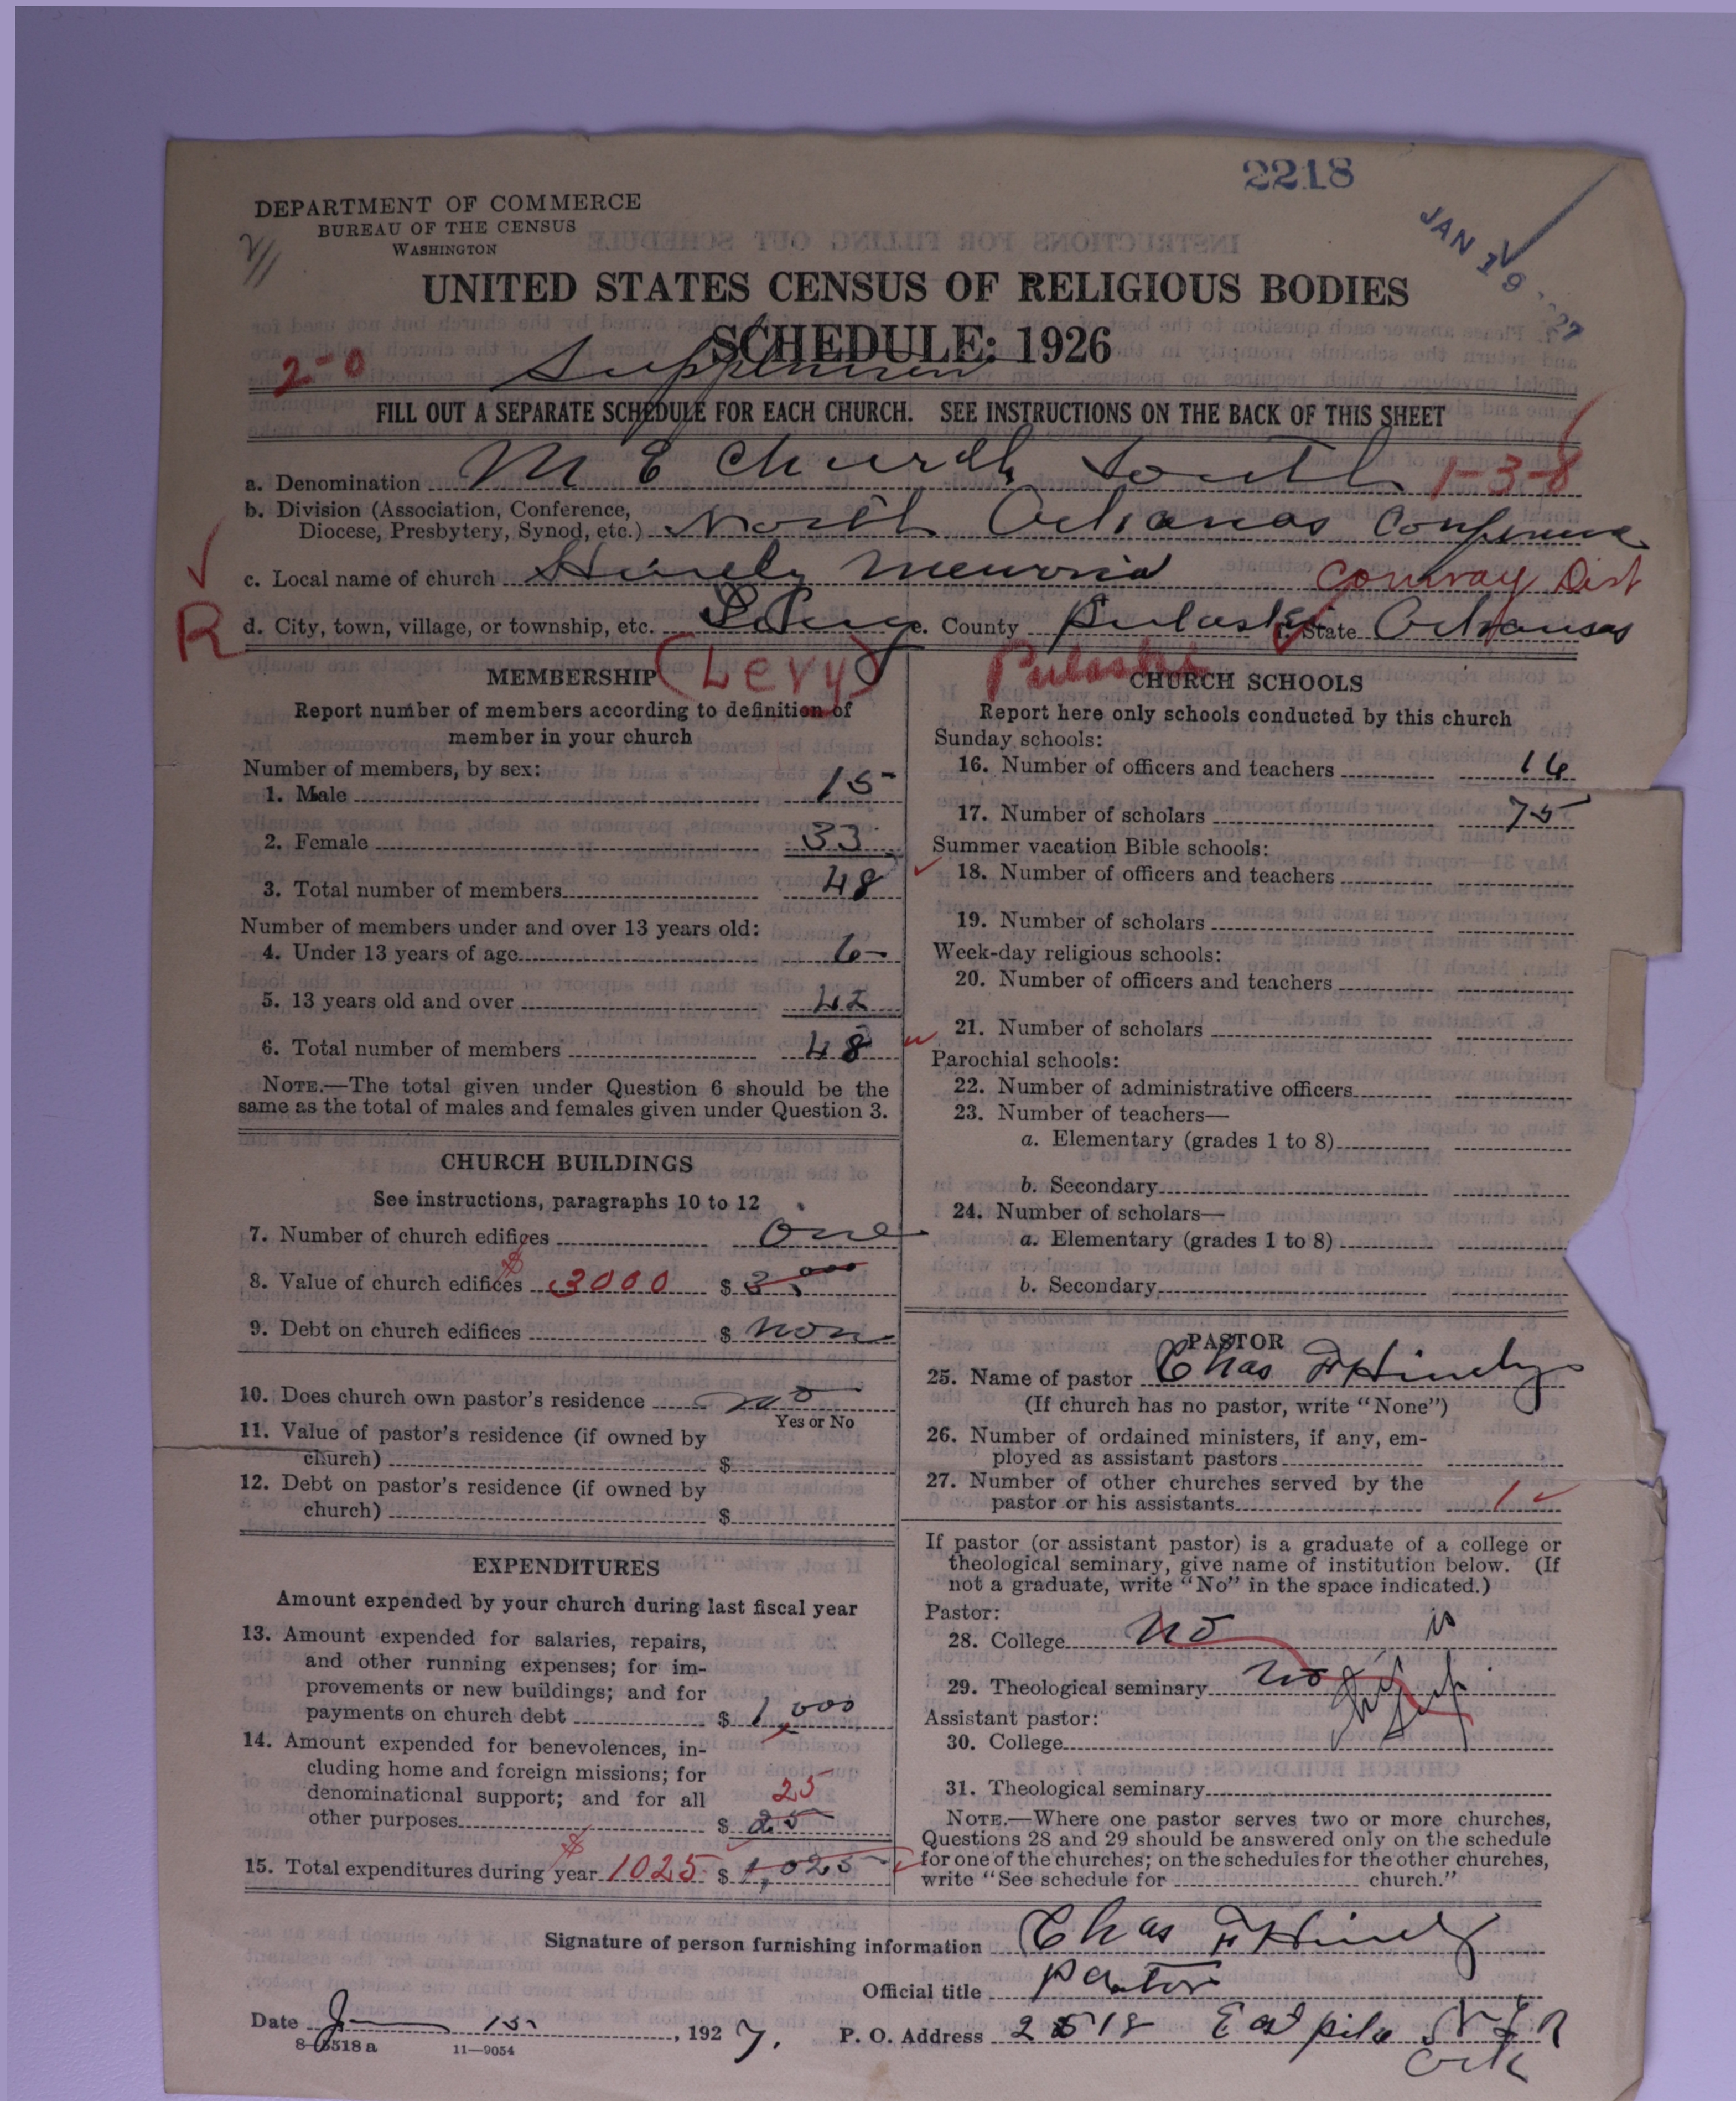 2218
JAN 19 27
DEPARTMENT OF COMMERCE
BUREAU OF THE CENSUS
WASHINGTON
UNITED STATES CENSUS OF RELIGIOUS BODIES
SCHEDULE: 1926
2-0
FILL OUT A SEPARATE SCHEDULE FOR EACH CHURCH. SEE INSTRUCTIONS ON THE BACK OF THIS SHEET
a. Denomination M E Church South 1-3-8
b. Division (Association, Conference,
Diocese, Presbytery, Synod, etc.) North Arkansas Conference
c. Local name of church Memorial Conway Dist
R
d. City, town, village, or township, etc. Levy e. County Pulaski f. State Arkansas
(Levy) Pulaski
MEMBERSHIP
Report number of members according to definition of
member in your church
Number of members, by sex:
1. Male 15
2. Female 33
3. Total number of members 48
Number of members under and over 13 years old:
4. Under 13 years of age 6
5. 13 years old and over 42
6. Total number of members 48
NOTE.—The total given under Question 6 should be the
same as the total of males and females given under Question 3.
CHURCH BUILDINGS
See instructions, paragraphs 10 to 12
7. Number of church edifices One
8. Value of church edifices $ 3000 $ 3,000
9. Debt on church edifices $ non
10. Does church own pastor's residence no
Yes or No
11. Value of pastor's residence (if owned by
church) $
12. Debt on pastor's residence (if owned by
church) $
EXPENDITURES
Amount expended by your church during last fiscal year
13. Amount expended for salaries, repairs,
and other running expenses; for im-
provements or new buildings; and for
payments on church debt $ 1,000
14. Amount expended for benevolences, in-
cluding home and foreign missions; for
denominational support; and for all 25
other purposes $ 25
15. Total expenditures during year $ 1025 $ 1,025
CHURCH SCHOOLS
Report here only schools conducted by this church
Sunday schools:
16. Number of officers and teachers
17. Number of scholars 75
Summer vacation Bible schools:
18. Number of officers and teachers
19. Number of scholars
Week-day religious schools:
20. Number of officers and teachers
21. Number of scholars
Parochial schools:
22. Number of administrative officers
23. Number of teachers—
a. Elementary (grades 1 to 8)
b. Secondary
24. Number of scholars—
a. Elementary (grades 1 to 8)
b. Secondary
PASTOR
25. Name of pastor Chas F Hively
(If church has no pastor, write "None")
26. Number of ordained ministers, if any, em-
ployed as assistant pastors
27. Number of other churches served by the
pastor or his assistants 1
If pastor (or assistant pastor) is a graduate of a college or
theological seminary, give name of institution below. (If
not a graduate, write "No" in the space indicated.)
Pastor:
28. College no
29. Theological seminary no
Assistant pastor:
30. College
31. Theological seminary
NOTE.—Where one pastor serves two or more churches,
Questions 28 and 29 should be answered only on the schedule
for one of the churches; on the schedules for the other churches,
write "See schedule for church."
Signature of person furnishing information Chas F Hively
Official title Pastor
Date 15 , 1927. P. O. Address Pike N L R
Ark
8-5518 a 11—9054